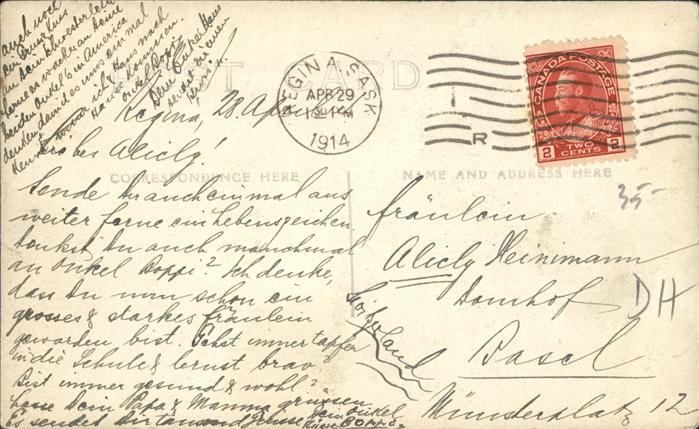 auch noch
ein Gruss
an dein Schwesterlein
an deine
beiden Onkels in America
denken, dann ist uns einmal
ich & Hans nach
Hause kommen.
Dein Onkel Hans
POST CARD
REGINA, SASK
APR 29
PM
1914
R
CANADA POSTAGE
2 TWO CENTS 2
Regina, 28. April
Liebes Alicly!
CORRESPONDENCE HERE
NAME AND ADDRESS HERE
Sende Dir auch einmal aus
weiter ferne ein Lebenszeichen
denkst Du auch manchmal
an Onkel Boppi? Ich denke,
dass Du nun schon ein
grosses & starkes fräulein
geworden bist. Gehst immer tapfer
in die Schule & lernst brav?
Bist immer gesund & wohl?
Lasse Dein Papa & Mamma grüssen
Es sendet Dir tausend Grüsse Dein Onkel
Boppi
fräulein
Alicly Heinimann
Domhof
Basel
Münsterplatz 12
Switzerland
35-
DH